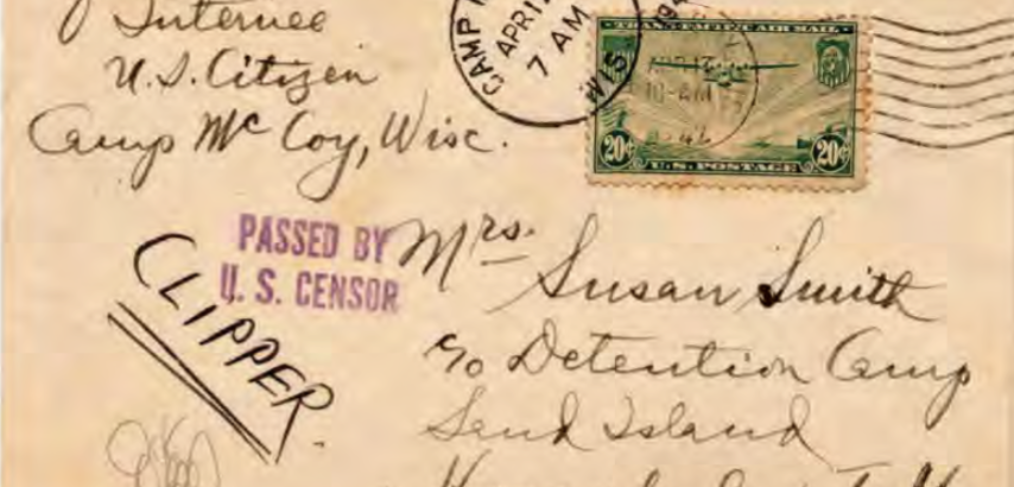 Internee
U.S. Citizen
Camp McCoy, Wisc.
CAMP
APR 17
7 AM
WIS
194
TRANS-PACIFIC AIR MAIL
10-AM
20¢ 20¢
U.S. POSTAGE
PASSED BY
U. S. CENSOR
CLIPPER.
Mrs. Susan Smith
c/o Detention Camp
Sand Island